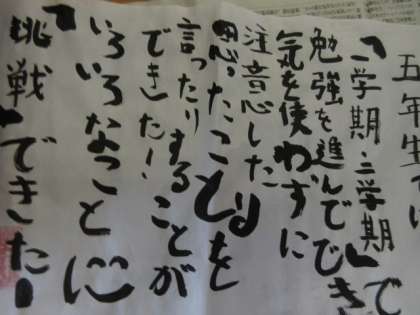 五年生では
「一学期・二学期」で
勉強を進んででき
気を使わずに
注意したり
思ったことを
言ったりすることが
できた!
いろいろなことに
挑戦」できた!